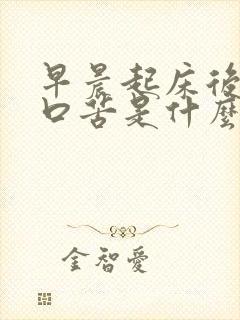 早晨起床後
口苦是什麼
金智愛